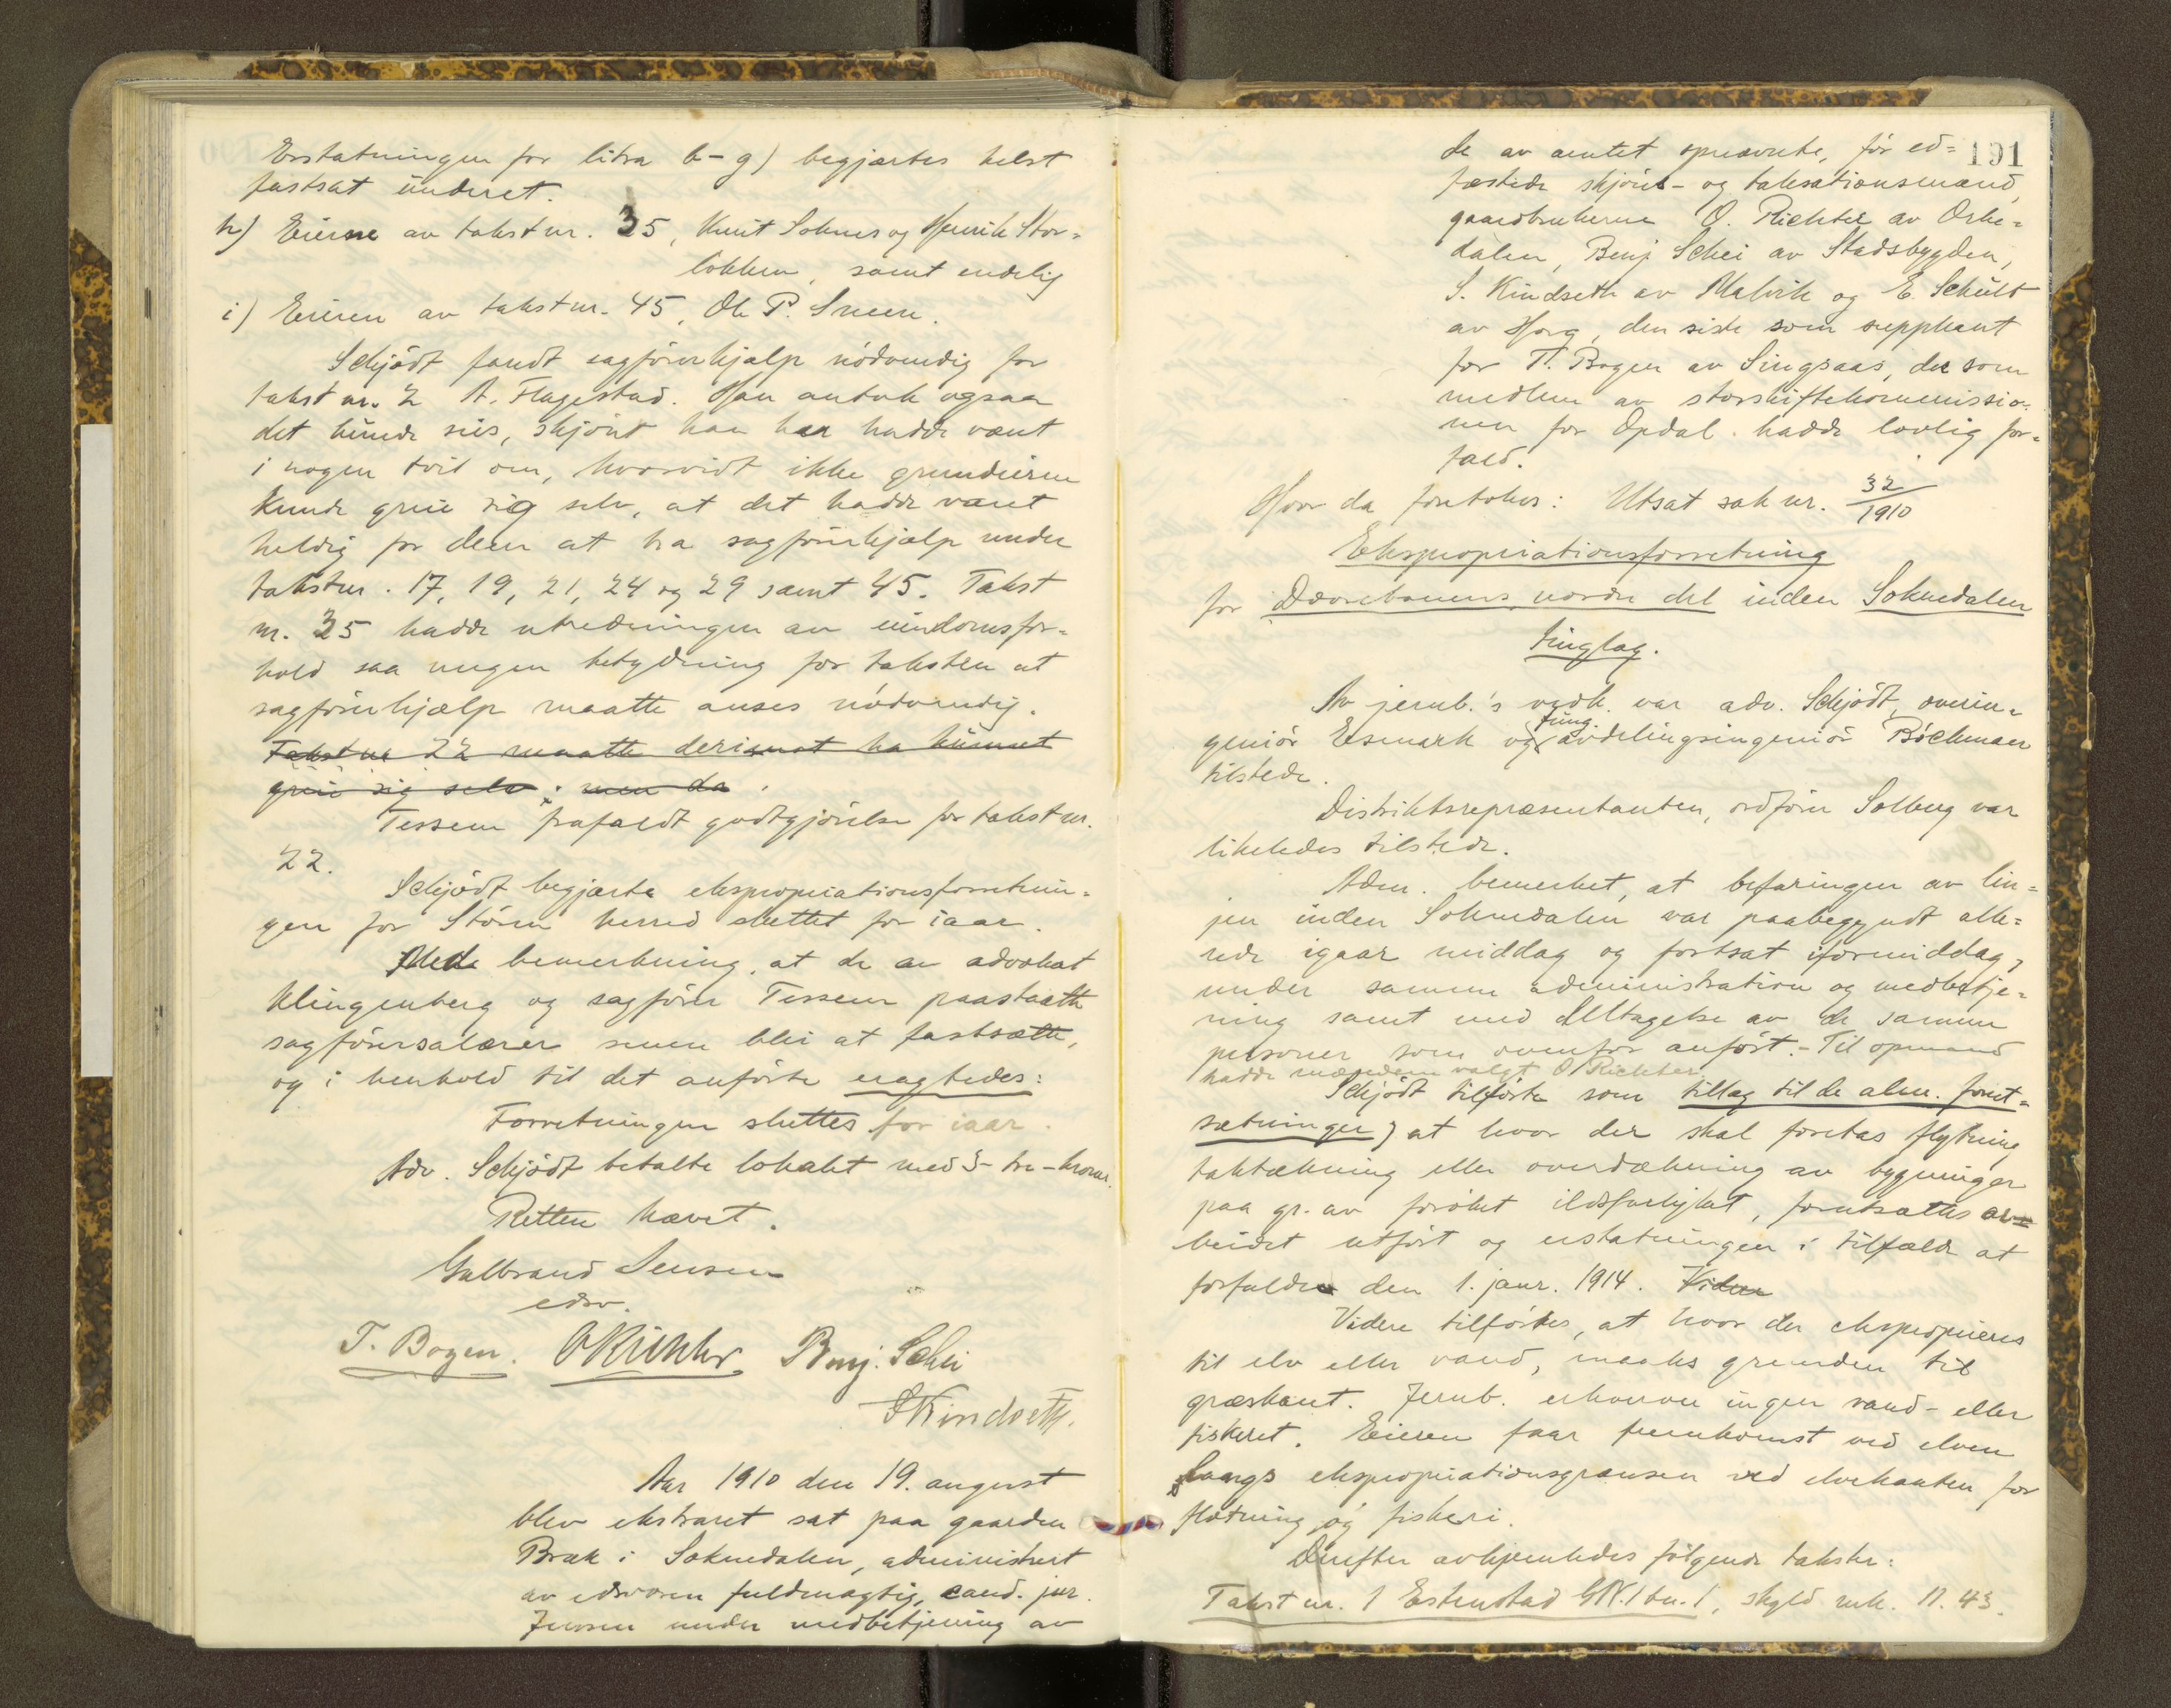 Erstatningen for litra b-g) begjærtes helst
fastsat underet.
h) Eierne av takst nr. 35, Knut Soknes og Henrik Stor-
løkken, samt endelig
i) Eieren av takst nr. 45, Ole P. Sneen.
Schjødt fandt sagførerhjælp nødvendig for
takst nr. 2 A. Flagestad. Han antok ogsaa
det kunde sies, skjønt han hadde vært
i nogen tvil om, hvorvidt ikke grundeieren
kunde greie sig selv, at det hadde været
heldig for dem at ha sagførerhjælp under
takst nr. 17, 19, 21, 24 og 29 samt 45. Takst
nr. 35 hadde utredningen av eiendomsfor-
hold saa megen betydning for taksten at
sagførerhjælp maatte anses nødvendig.
Takst nr 22 maatte derimot ha kunnet
greie sig selv. men da
Tessem frafaldt godtgjørelse for takst nr.
22.
Schjødt begjærte ekspropriationsforretnin-
gen for Støren herred sluttet for iaar.
Med bemerkning, at de av advokat
Klingenberg og sagfører Tessem paastaatte
sagførersalærer senere blir at fastsætte,
og i henhold til det anførte eragtedes:
Forretningen sluttes for iaar.
Adv. Schjødt betalte lokalet med 3- tre - kroner.
Retten hævet.
Gulbrand Jensen
edsv.
T. Bogen. O Richter. Benj. Schei
S Kindseth.
Aar 1910 den 19. august
blev ekstraret sat paa gaarden
Bræk i Soknedalen, administrert
av edsvoren fuldmægtig, cand. jur.
Jensen under medbetjening av
191
de av amtet opnævnte, før ed-
fæstede skjøns- og taksationsmænd,
gaardbrukerne O. Richter av Orke-
dalen, Benj Schei av Stadsbygden,
S. Kindseth av Malvik og E. Schult
av Horg, den siste som suppleant
for T. Bogen av Singsaas, der som
medlem av storskiftekommissio-
nen for Opdal. hadde lovlig for-
fald.
Hvor da foretokes: Utsat sak nr. 32/1910
Ekspropriationsforretning
for Dovrebanens nordre del inden Soknedalen
tinglag.
Av jernb.'s vedk. var adv. Schjødt, overin-
geniør Eismark og fung. avdelingsingeniør Bøckman
tilstede.
Distriktsrepræsentanten, ordfører Solberg var
likeledes tilstede.
Adm. bemerket, at befaringen av lin-
jen inden Soknedalen var paabegyndt alle-
rede igaar middag og fortsat iformiddag,
under samme administration og medbetje-
ning samt med deltagelse av de samme
personer som ovenfor anført. - Til opmand
hadde mændene valgt O Richter.
Schjødt tilførte som tillæg til de alm. foruT-
sætninger, at hvor der skal foretas flytning
taktækning eller overdækning av bygninger
paa gr. av forøket ildsfarlighet, forutsættes ar-
beidet utført og erstatningen i tilfælde at
forfalde den 1. janr. 1914. Videre
Videre tilførtes, at hvor der eksproprieres
til elv eller vand, maales grunden til
græskant. Jernb. erhverver ingen vand- eller
fiskeret. Eieren faar fremkomst ved elven
langs ekspropriationsgrænsen ved elvekanten for
fløtning og fiskeri.
Derefter avhjemledes følgende takster:
Takst nr. 1 Estenstad GN. 1 bn. 1, skyld mk. 11.43.